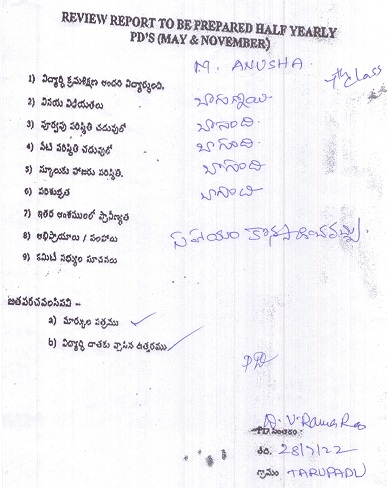 REVIEW REPORT TO BE PREPARED HALF YEARLY
PD'S (MAY & NOVEMBER)
M. ANUSHA. 7th class
1) విద్యార్థి క్రమశిక్షణ అందరి విద్యార్థుంది.
2) వినయ విధేయతలు బాగున్నాయి
3) పూర్వపు పరిస్థితి చదువులో బాగుంది.
4) నేటి పరిస్థితి చదువులో బాగుంది
5) స్కూలుకు హాజరు పరిస్థితి. బాగుంది
6) పరిశుభ్రత బాగుంది
7) ఇతర అంశములలో ప్రావీణ్యత
8) అభిప్రాయాలు / సలహాలు సహాయం కొనసాగించవచ్చు.
9) కమిటీ సభ్యుల సూచనలు
జతపరచవలసినవి :-
a) మార్కుల పత్రము ✓
b) విద్యార్థి దాతకు వ్రాసిన ఉత్తరము ✓
D. V. Rama Rao
PD సంతకం :
తేది. 28/7/22
గ్రామం TARUPADU